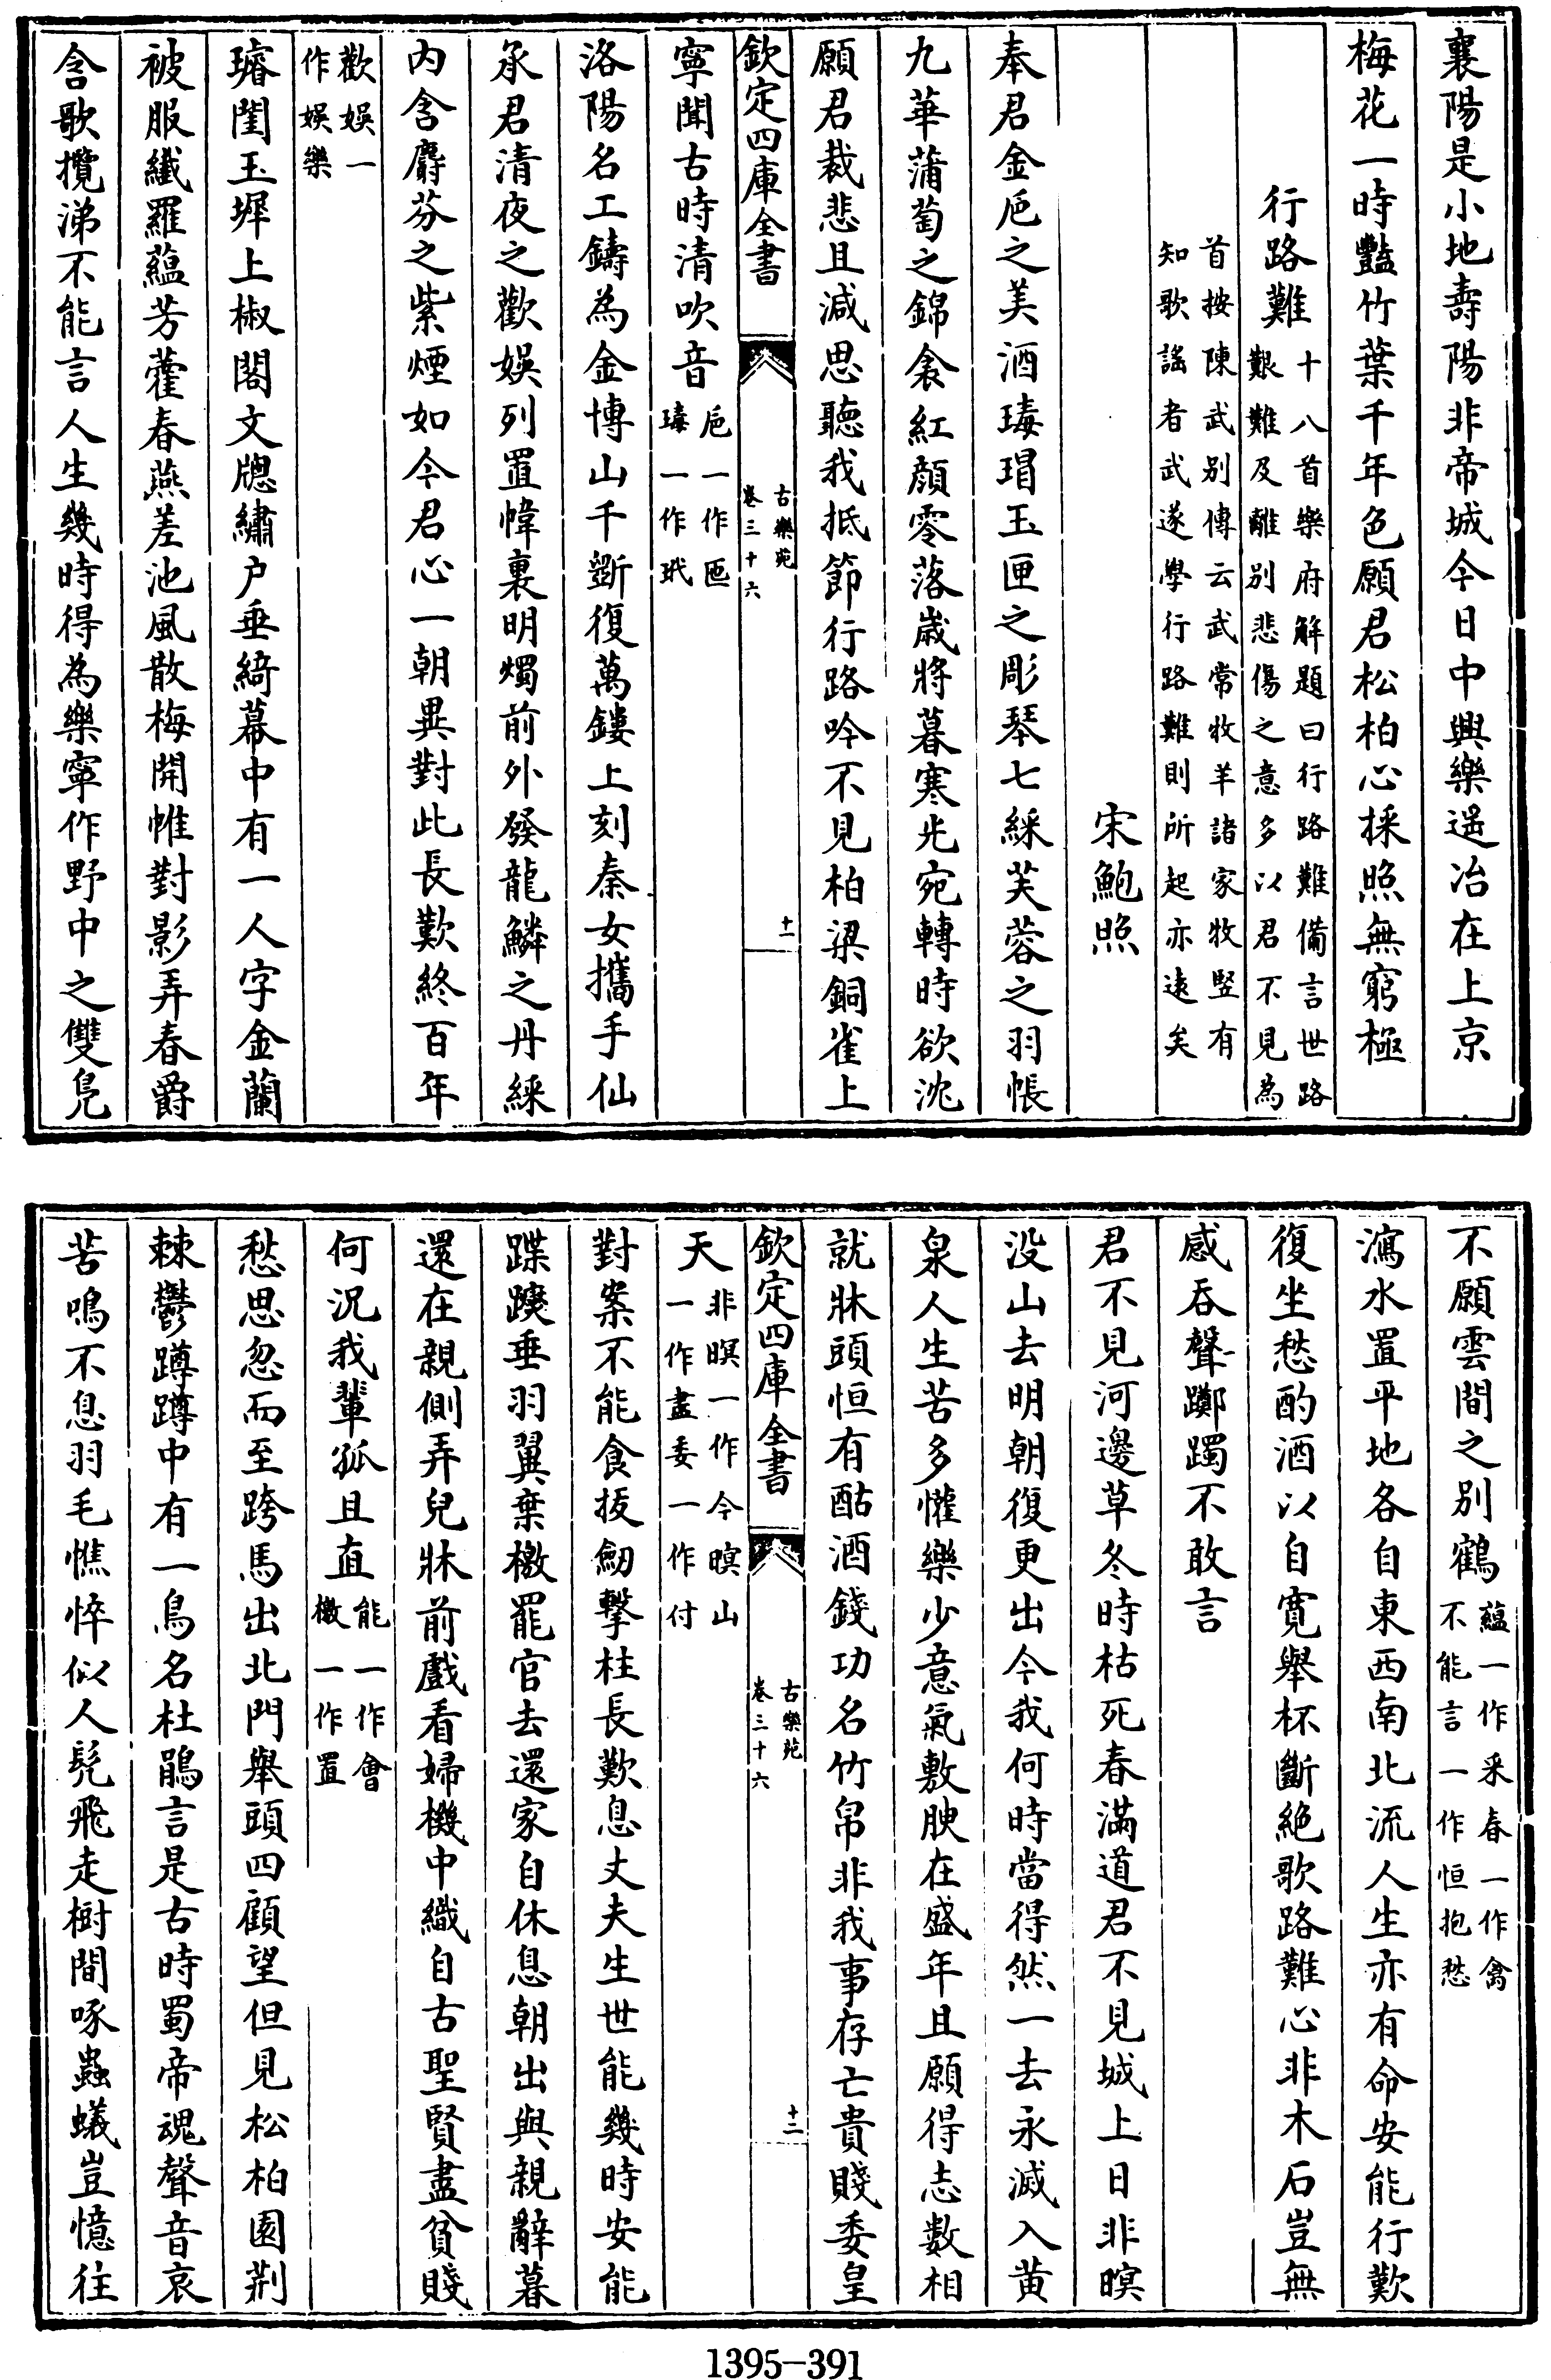 襄陽是小地壽陽非帝城今日中興樂遥冶在上京
梅花一時豔竹葉千年色願君松柏心採照無窮極
行路難十八首樂府解題曰行路難備言世路
艱難及離別悲傷之意多以君不見為
首按陳武别傳云武常牧羊諸家牧豎有
知歌謡者武遂學行路難則所起亦遠矣
宋鮑照
奉君金巵之美酒瑇瑁玉匣之彫琴七綵芙蓉之羽帳
九華蒲萄之錦衾紅顔零落嵗將暮寒光宛轉時欲沈
願君裁悲且減思聽我抵節行路吟不見柏梁銅雀上
欽定四庫全書
古樂苑
卷三十六
十一
寧聞古時清吹音巵一作匜
瑇一作玳
洛陽名工鑄為金博山千斲復萬鏤上刻秦女攜手仙
承君清夜之歡娛列置幃裏明燭前外發龍鱗之丹綵
内含麝芬之紫煙如今君心一朝異對此長歎終百年
歡娛一
作娛樂
璿閨玉墀上椒閣文牕繡户垂綺幕中有一人字金蘭
被服纖羅蘊芳藿春燕差池風散梅開帷對影弄春爵
含歌攬涕不能言人生幾時得為樂寧作野中之雙鳬
不願雲間之别鶴蘊一作采春一作禽
不能言一作恒抱愁
瀉水置平地各自東西南北流人生亦有命安能行歎
復坐愁酌酒以自寛舉杯斷絶歌路難心非木石豈無
感吞聲躑躅不敢言
君不見河邊草冬時枯死春滿道君不見城上日非暝
没山去明朝復更出今我何時當得然一去永滅入黄
泉人生苦多懽樂少意氣敷腴在盛年且願得志數相
就牀頭恒有酤酒錢功名竹帛非我事存亡貴賤委皇
欽定四庫全書
古樂苑
卷三十六
十二
天非暝一作今暝山
一作盡委一作付
對案不能食拔劒擊柱長歎息丈夫生世能幾時安能
蹀躞垂羽翼棄檄罷官去還家自休息朝出與親辭暮
還在親側弄兒牀前戲看婦機中織自古聖賢盡貧賤
何況我輩孤且直能一作會
檄一作置
愁思忽而至跨馬出北門舉頭四顧望但見松柏園荆
棘鬱蹲蹲中有一鳥名杜鵑言是古時蜀帝魂聲音哀
苦鳴不息羽毛憔悴似人髠飛走樹間啄蟲蟻豈憶往
1395-391